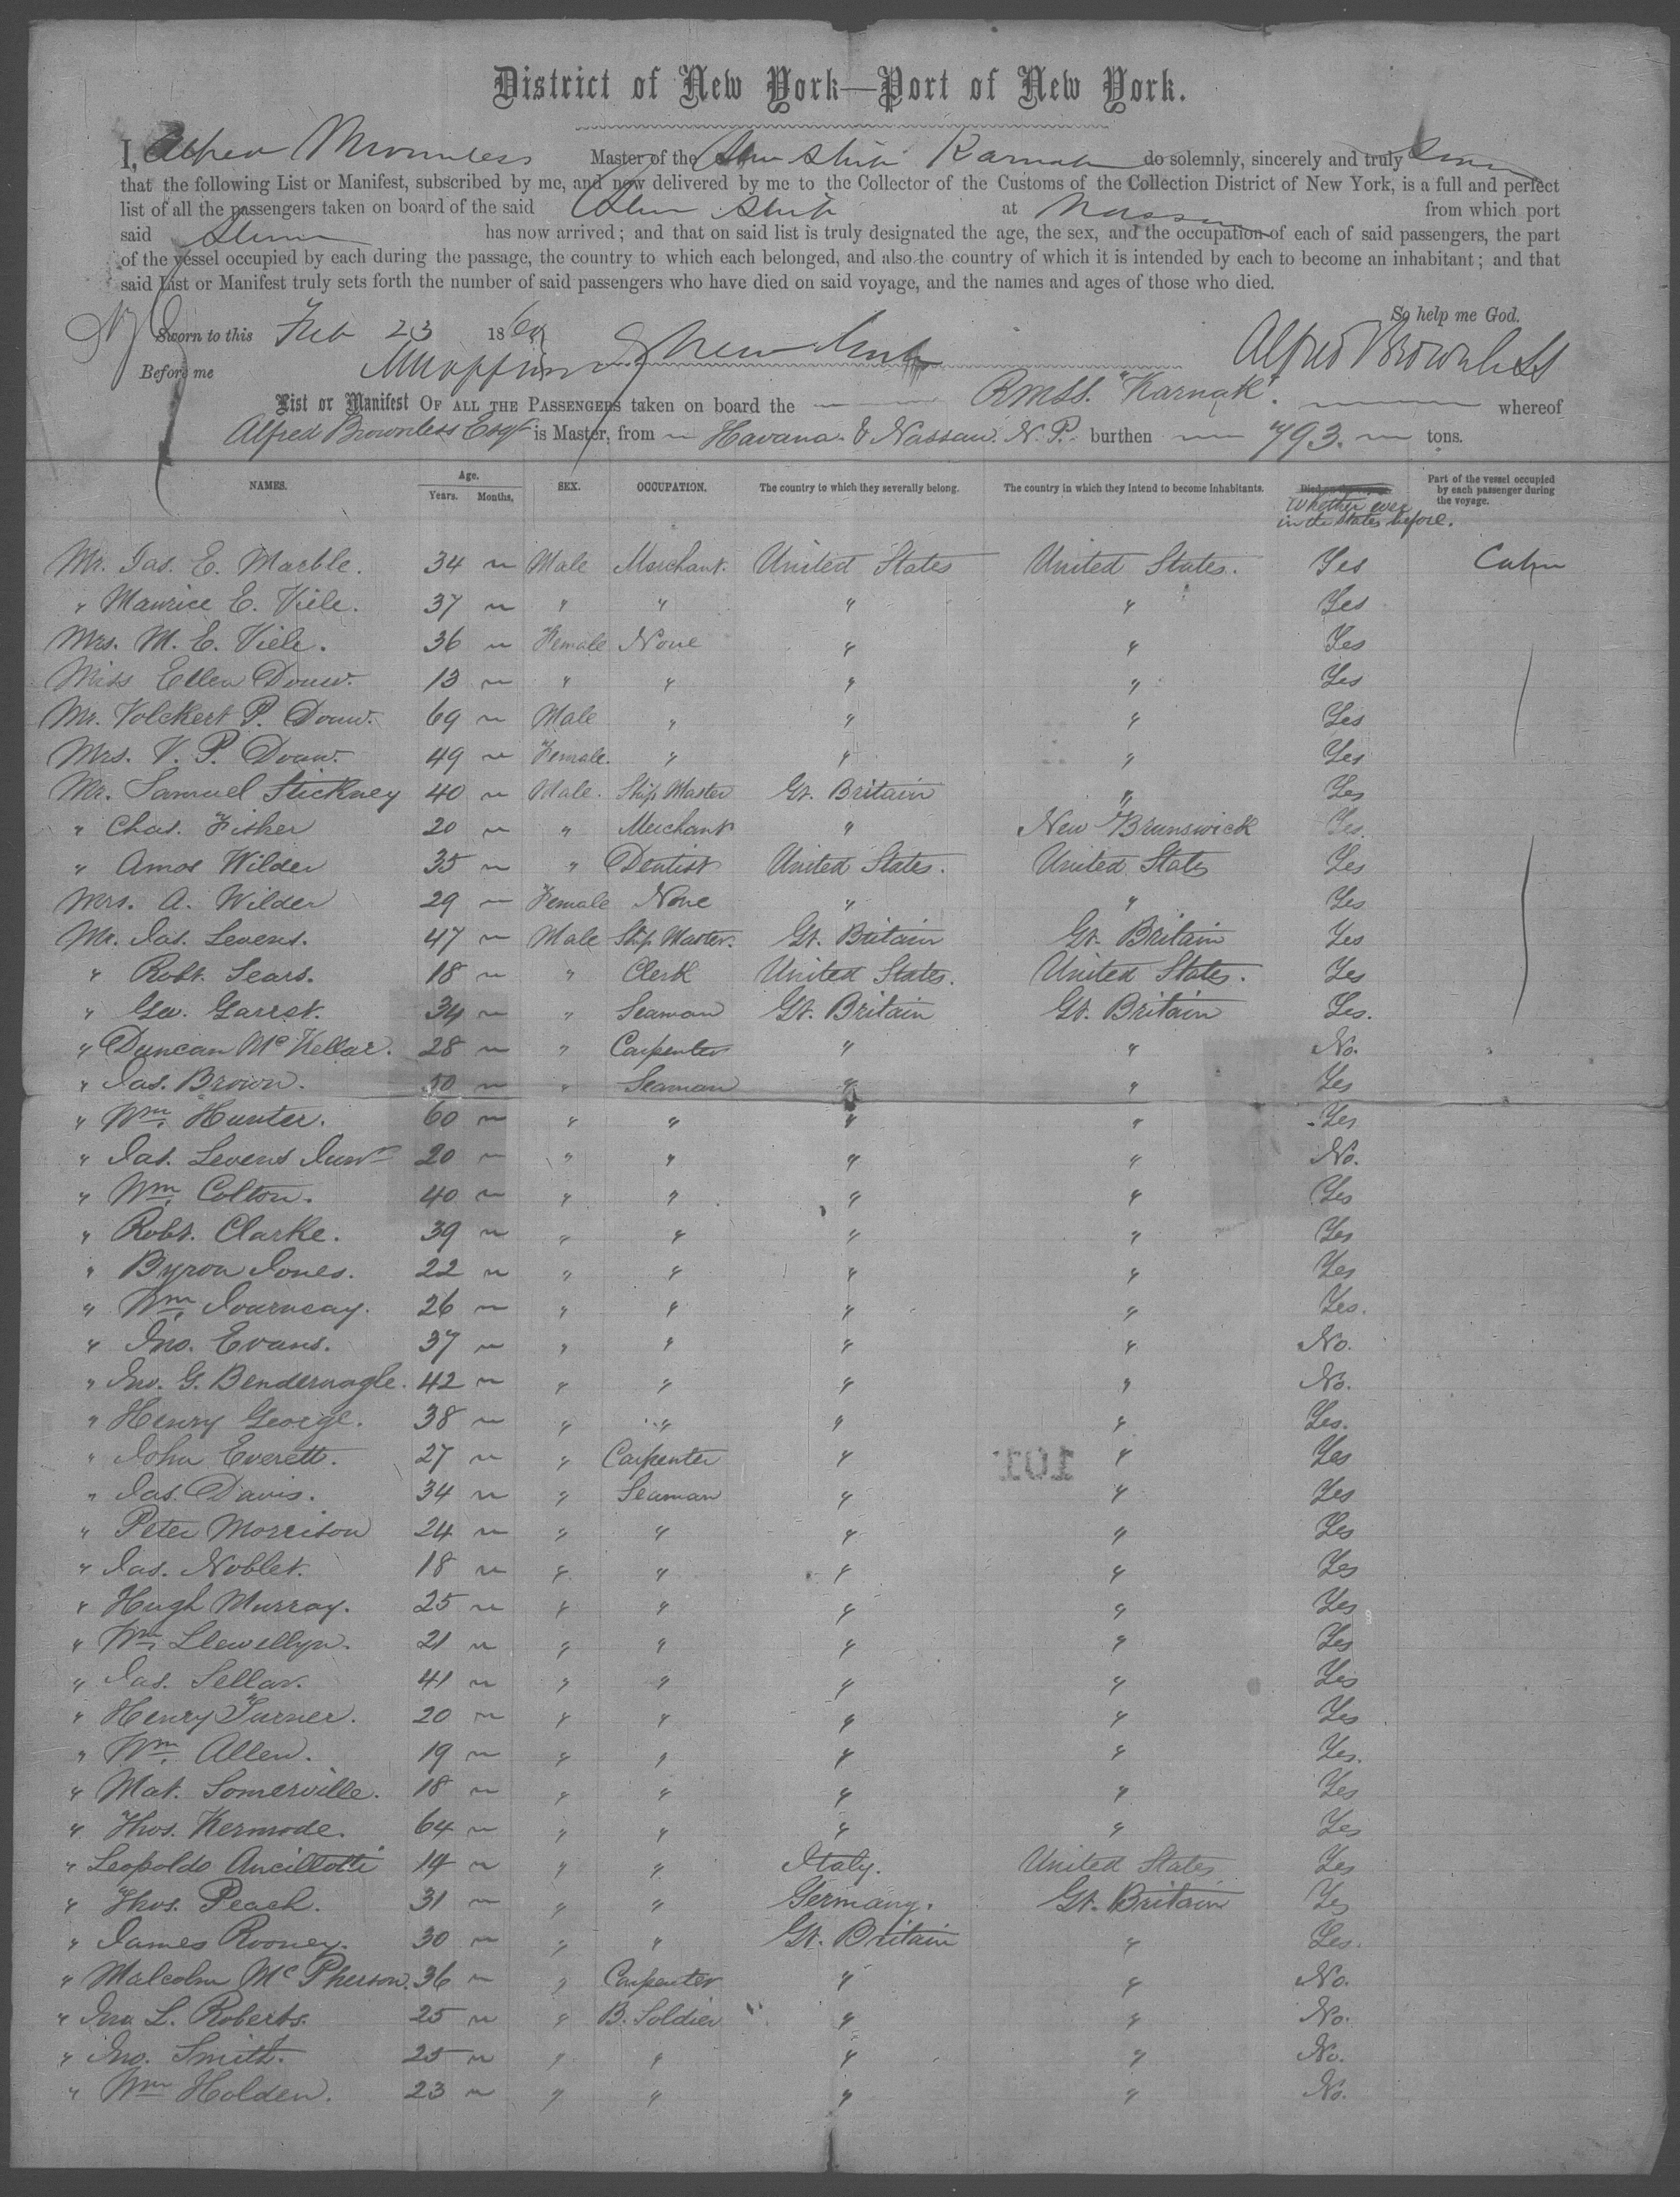 District of New York—Port of New York.
I, Alfred Brownless Master of the Stm Ship Karnak do solemnly, sincerely and truly Swear
that the following List or Manifest, subscribed by me, and now delivered by me to the Collector of the Customs of the Collection District of New York, is a full and perfect
list of all the passengers taken on board of the said Stm Ship at Nassau from which port
said Stmr has now arrived; and that on said list is truly designated the age, the sex, and the occupation of each of said passengers, the part
of the vessel occupied by each during the passage, the country to which each belonged, and also the country of which it is intended by each to become an inhabitant; and that
said List or Manifest truly sets forth the number of said passengers who have died on said voyage, and the names and ages of those who died.
So help me God.
Sworn to this Feb 23 186
Before me Alfred Brownless
List or Manifest OF ALL THE PASSENGERS taken on board the RMSS. "Karnak". whereof
Alfred Brownless Esqr is Master, from Havana & Nassau. N. P. burthen 793. tons.
NAMES. Age. Years. Months, SEX. OCCUPATION. The country to which they severally belong. The country in which they intend to become inhabitants. Died on the voyage. Whether ever in the States before. Part of the vessel occupied by each passenger during the voyage.
Mr. Jas. E. Marble. 34 Male Merchant. United States United States. Yes Cabin
" Maurice E. Viele. 37 " " " " Yes
Mrs. M. E. Viele. 36 Female None " " Yes
Miss Ellen Douw. 13 " " " " Yes
Mr. Volckert P. Douw. 69 Male " " " Yes
Mrs. V. P. Douw. 49 Female. " " " Yes
Mr. Samuel Stickney 40 Male. Ship Master Gt. Britain " Yes
" Chas. Fisher 20 " Merchant " New Brunswick Yes.
" Amos Wilder 35 " Dentist United States. United States Yes
Mrs. A. Wilder 29 Female None " " Yes
Mr. Jas. Levens. 47 Male Ship Master. Gt. Britain Gt. Britain Yes
" Robt. Sears. 18 " Clerk United States. United States. Yes
" Geo. Garret. 34 " Seaman Gt. Britain Gt. Britain Yes.
" Duncan McKellar. 28 " Carpenter " " No.
" Jas. Brown. 50 " Seaman " " Yes
" Wm. Hunter. 60 " " " " Yes
" Jas. Levens Junr 20 " " " " No.
" Wm. Colton. 40 " " " " Yes
" Robt. Clarke. 39 " " " " Yes
" Byron Jones. 22 " " " " Yes
" Wm. Journeay. 26 " " " " Yes.
" Jno. Evans. 37 " " " " No.
" Jno. G. Bendernagle. 42 " " " " No.
" Henry George. 38 " " " " Yes.
" John Everett. 27 " Carpenter " " Yes
101
" Jas. Davis. 34 " Seaman " " Yes
" Peter Morrison 24 " " " " Yes
" Jas. Noblet. 18 " " " " Yes
" Hugh Murray. 25 " " " " Yes
" Wm. Llewellyn. 21 " " " " Yes
" Jas. Sellar. 41 " " " " Yes
" Henry Turner. 20 " " " " Yes
" Wm. Allen. 19 " " " " Yes.
" Mat. Somerville. 18 " " " " Yes
" Thos. Kermode. 64 " " " " Yes
" Leopoldo Ancillotti 14 " " Italy. United States Yes
" Thos. Peach. 31 " " Germany. Gt. Britain Yes
" James Rooney. 30 " " Gt. Britain " Yes.
" Malcolm McPherson. 36 " Carpenter " " No.
" Jno. L. Roberts. 25 " B. Soldier " " No.
" Jno. Smith. 25 " " " " No.
" Wm Holden. 23 " " " " No.